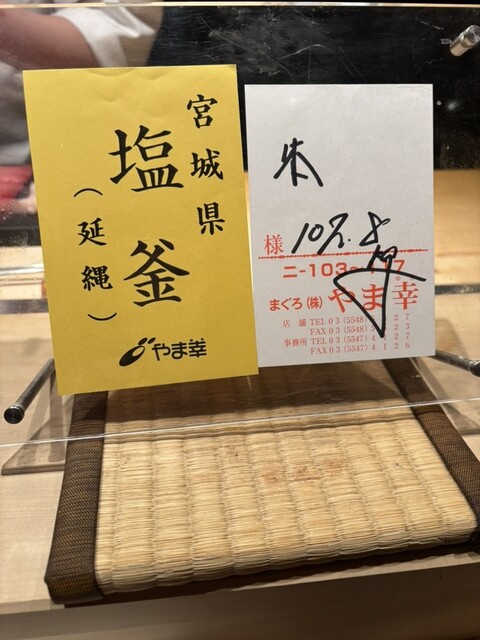 宮城県
塩釜
(延縄)
やま幸
様
107.8
ニ-103~
まぐろ(株)やま幸
店舗 TEL 03(5548)
FAX 03(5548)
事務所 TEL 03(5547)4127
FAX 03(5547)4126